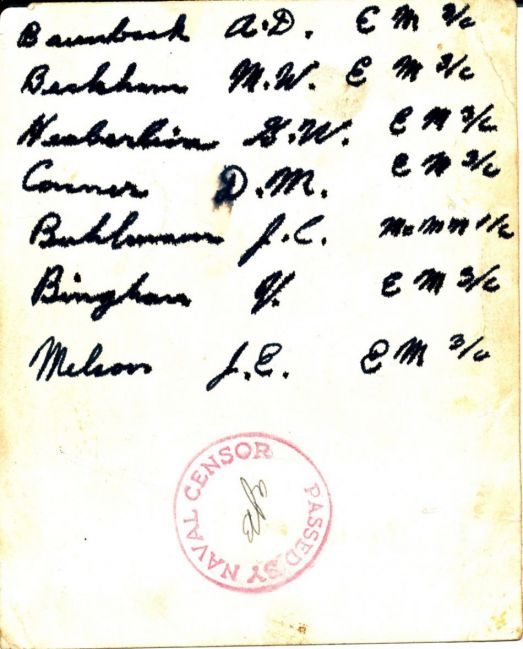 Baumback A.D. E M 3/c
Beckham M.W. E M 3/c
G.W. E M 3/c
Conner D.M. E M 3/c
J.C. MoMM 1/c
Bingham V. E M 3/c
Melson J.E. E M 3/c
PASSED BY NAVAL CENSOR